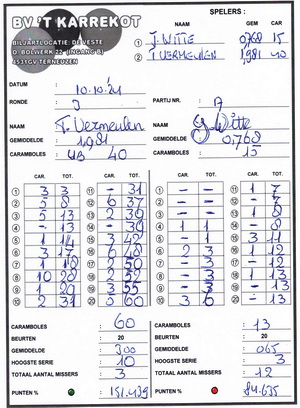 BV.'T KARREKOT
BILJARTLOCATIE: DE VESTE
O. BOLWERK 22 (INGANG B)
4531GV TERNEUZEN
SPELERS :
NAAM GEM CAR
1 J. WITTE 0,768 15
2 T VERMEULEN 1,981 40
DATUM : 10.10.'21
RONDE : PARTIJ NR. :
NAAM T. Vermeulen NAAM J. Witte
GEMIDDELDE : 1,981 GEMIDDELDE : 0,768
CARAMBOLES : 40 CARAMBOLES : 15
CAR. TOT. CAR. TOT. CAR. TOT. CAR. TOT.
1 3 3 11 - 31 1 - - 11 1 7
2 5 8 12 6 37 2 - - 12
3 5 13 13 2 39 3 - - 13 1 8
4 - 13 14 - 39 4 1 1 14 - 8
5 1 14 15 3 42 5 - 1 15 3 11
6 3 17 16 6 48 6 2 3 16
7 1 18 17 2 50 7 - 3 17 - 12
8 10 28 18 2 52 8 - 3 18 1 13
9 1 29 19 3 55 9 - 3 19 - 13
10 2 31 20 5 60 10 3 6 20 - 13
CARAMBOLES : 60 CARAMBOLES : 13
BEURTEN : 20 BEURTEN : 20
GEMIDDELDE : 300 GEMIDDELDE : 065
HOOGSTE SERIE : 10 HOOGSTE SERIE : 3
TOTAAL AANTAL MISSERS : 3 TOTAAL AANTAL MISSERS : 12
PUNTEN % : 151.439 PUNTEN % : 84.635